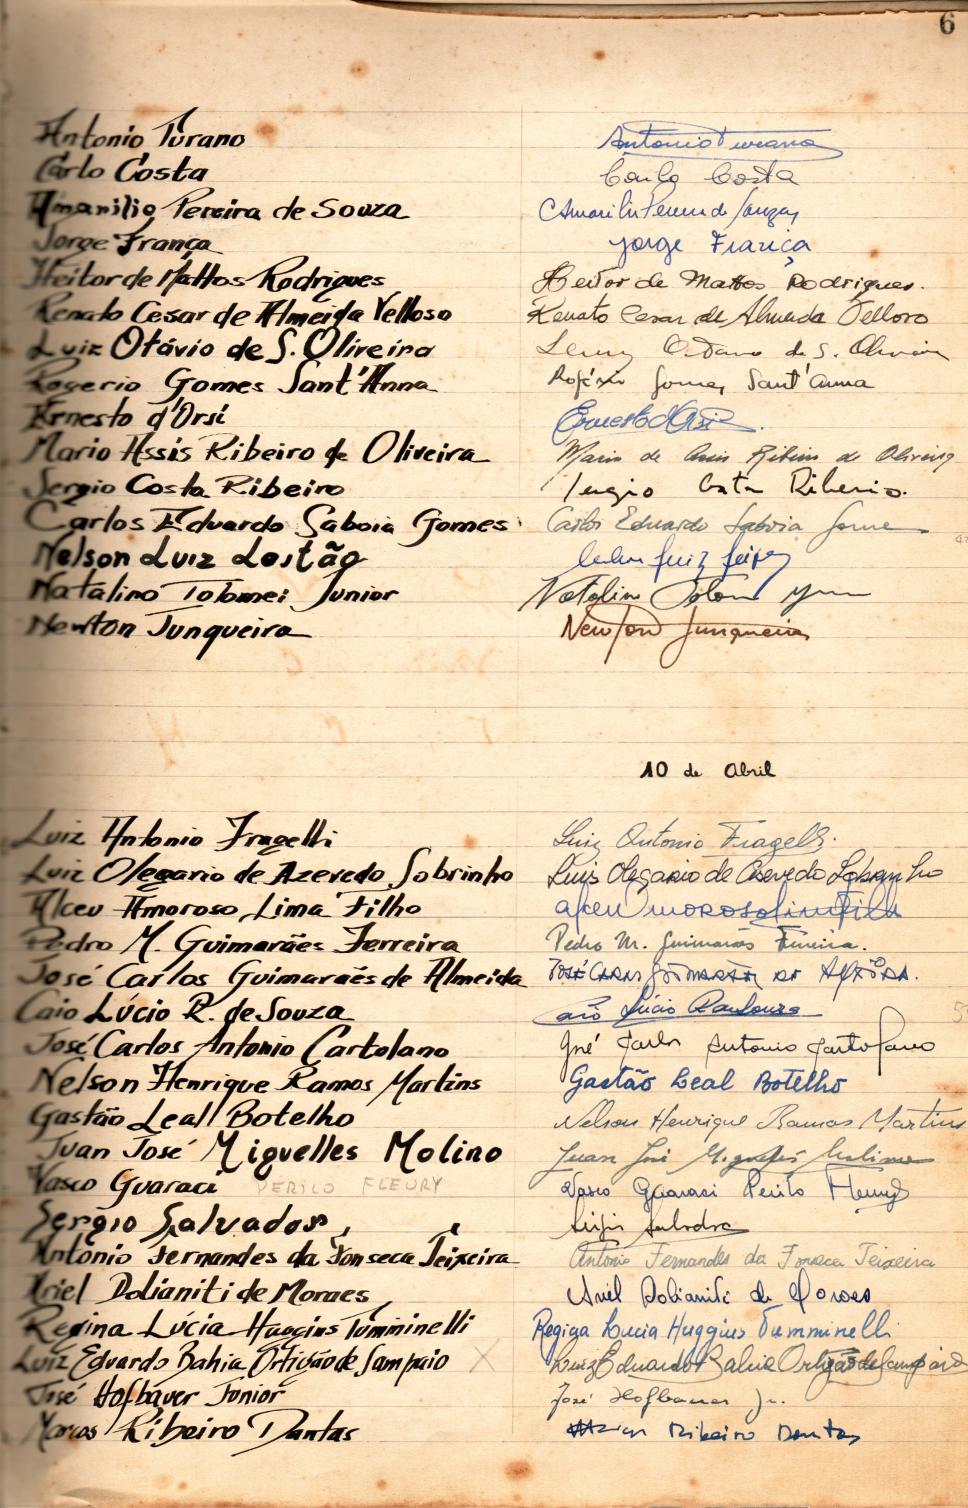 6
Antonio Turano Antonio Turano
Carlo Costa Carlo Costa
Amarilio Pereira de Souza Amarilio Pereira de Souza
Jorge França Jorge França
Heitor de Mattos Rodrigues Heitor de Mattos Rodrigues.
Renato Cesar de Almeida Velloso Renato Cesar de Almeida Velloso
Luiz Otávio de S. Oliveira de S. Oliveira
Rogerio Gomes Sant'Anna Rogério Gomes Sant'anna
Ernesto d'Orsi Ernesto d'Orsi
Mario Assis Ribeiro de Oliveira Mario de Assis Ribeiro de Oliveira
Sergio Costa Ribeiro Sergio Costa Ribeiro.
Carlos Eduardo Saboia Gomes Carlos Eduardo Saboia Gomes
Nelson Luiz Lostão Luiz
Natalino Tolomei Junior Natalino
Newton Junqueira Newton Junqueira
10 de Abril
Luiz Antonio Fragelli Luiz Antonio Fragelli.
Luiz Olegario de Azevedo Sobrinho Luis Olegario de Azevedo Sobrinho
Alceu Amoroso Lima Filho Alceu Amoroso Lima Filho
Pedro M. Guimarães Ferreira Pedro M. Guimarães Ferreira.
José Carlos Guimaraẽs de Almeida José
Caio Lúcio R. de Souza Caio Lúcio
José Carlos Antonio Cartolano José Carlos Antonio Cartolano
Nelson Henrique Ramos Martins Gastão Leal Botelho
Gastão Leal Botelho Nelson Henrique Ramos Martins
Juan José Miguelles Molino Juan José
Vasco Guaraci PERILO FLEURY Vasco Guaraci Perilo Fleury
Sergio Salvador Salvador
Antonio Fernandes da Fonseca Teixeira Antonio Fernandes da Fonseca Teixeira
Ariel Dolianiti de Moraes Ariel Dolianiti de Moraes
Regina Lúcia Huggins Tumminelli Regina Lucia Huggins Tumminelli
Luiz Eduardo Bahia Ortigão de Sampaio X Luiz Eduardo Bahia Ortigão de Sampaio
José Hofbaver Junior José Hofbauer Jr.
Marcos Ribeiro Dantas Ribeiro Dantas